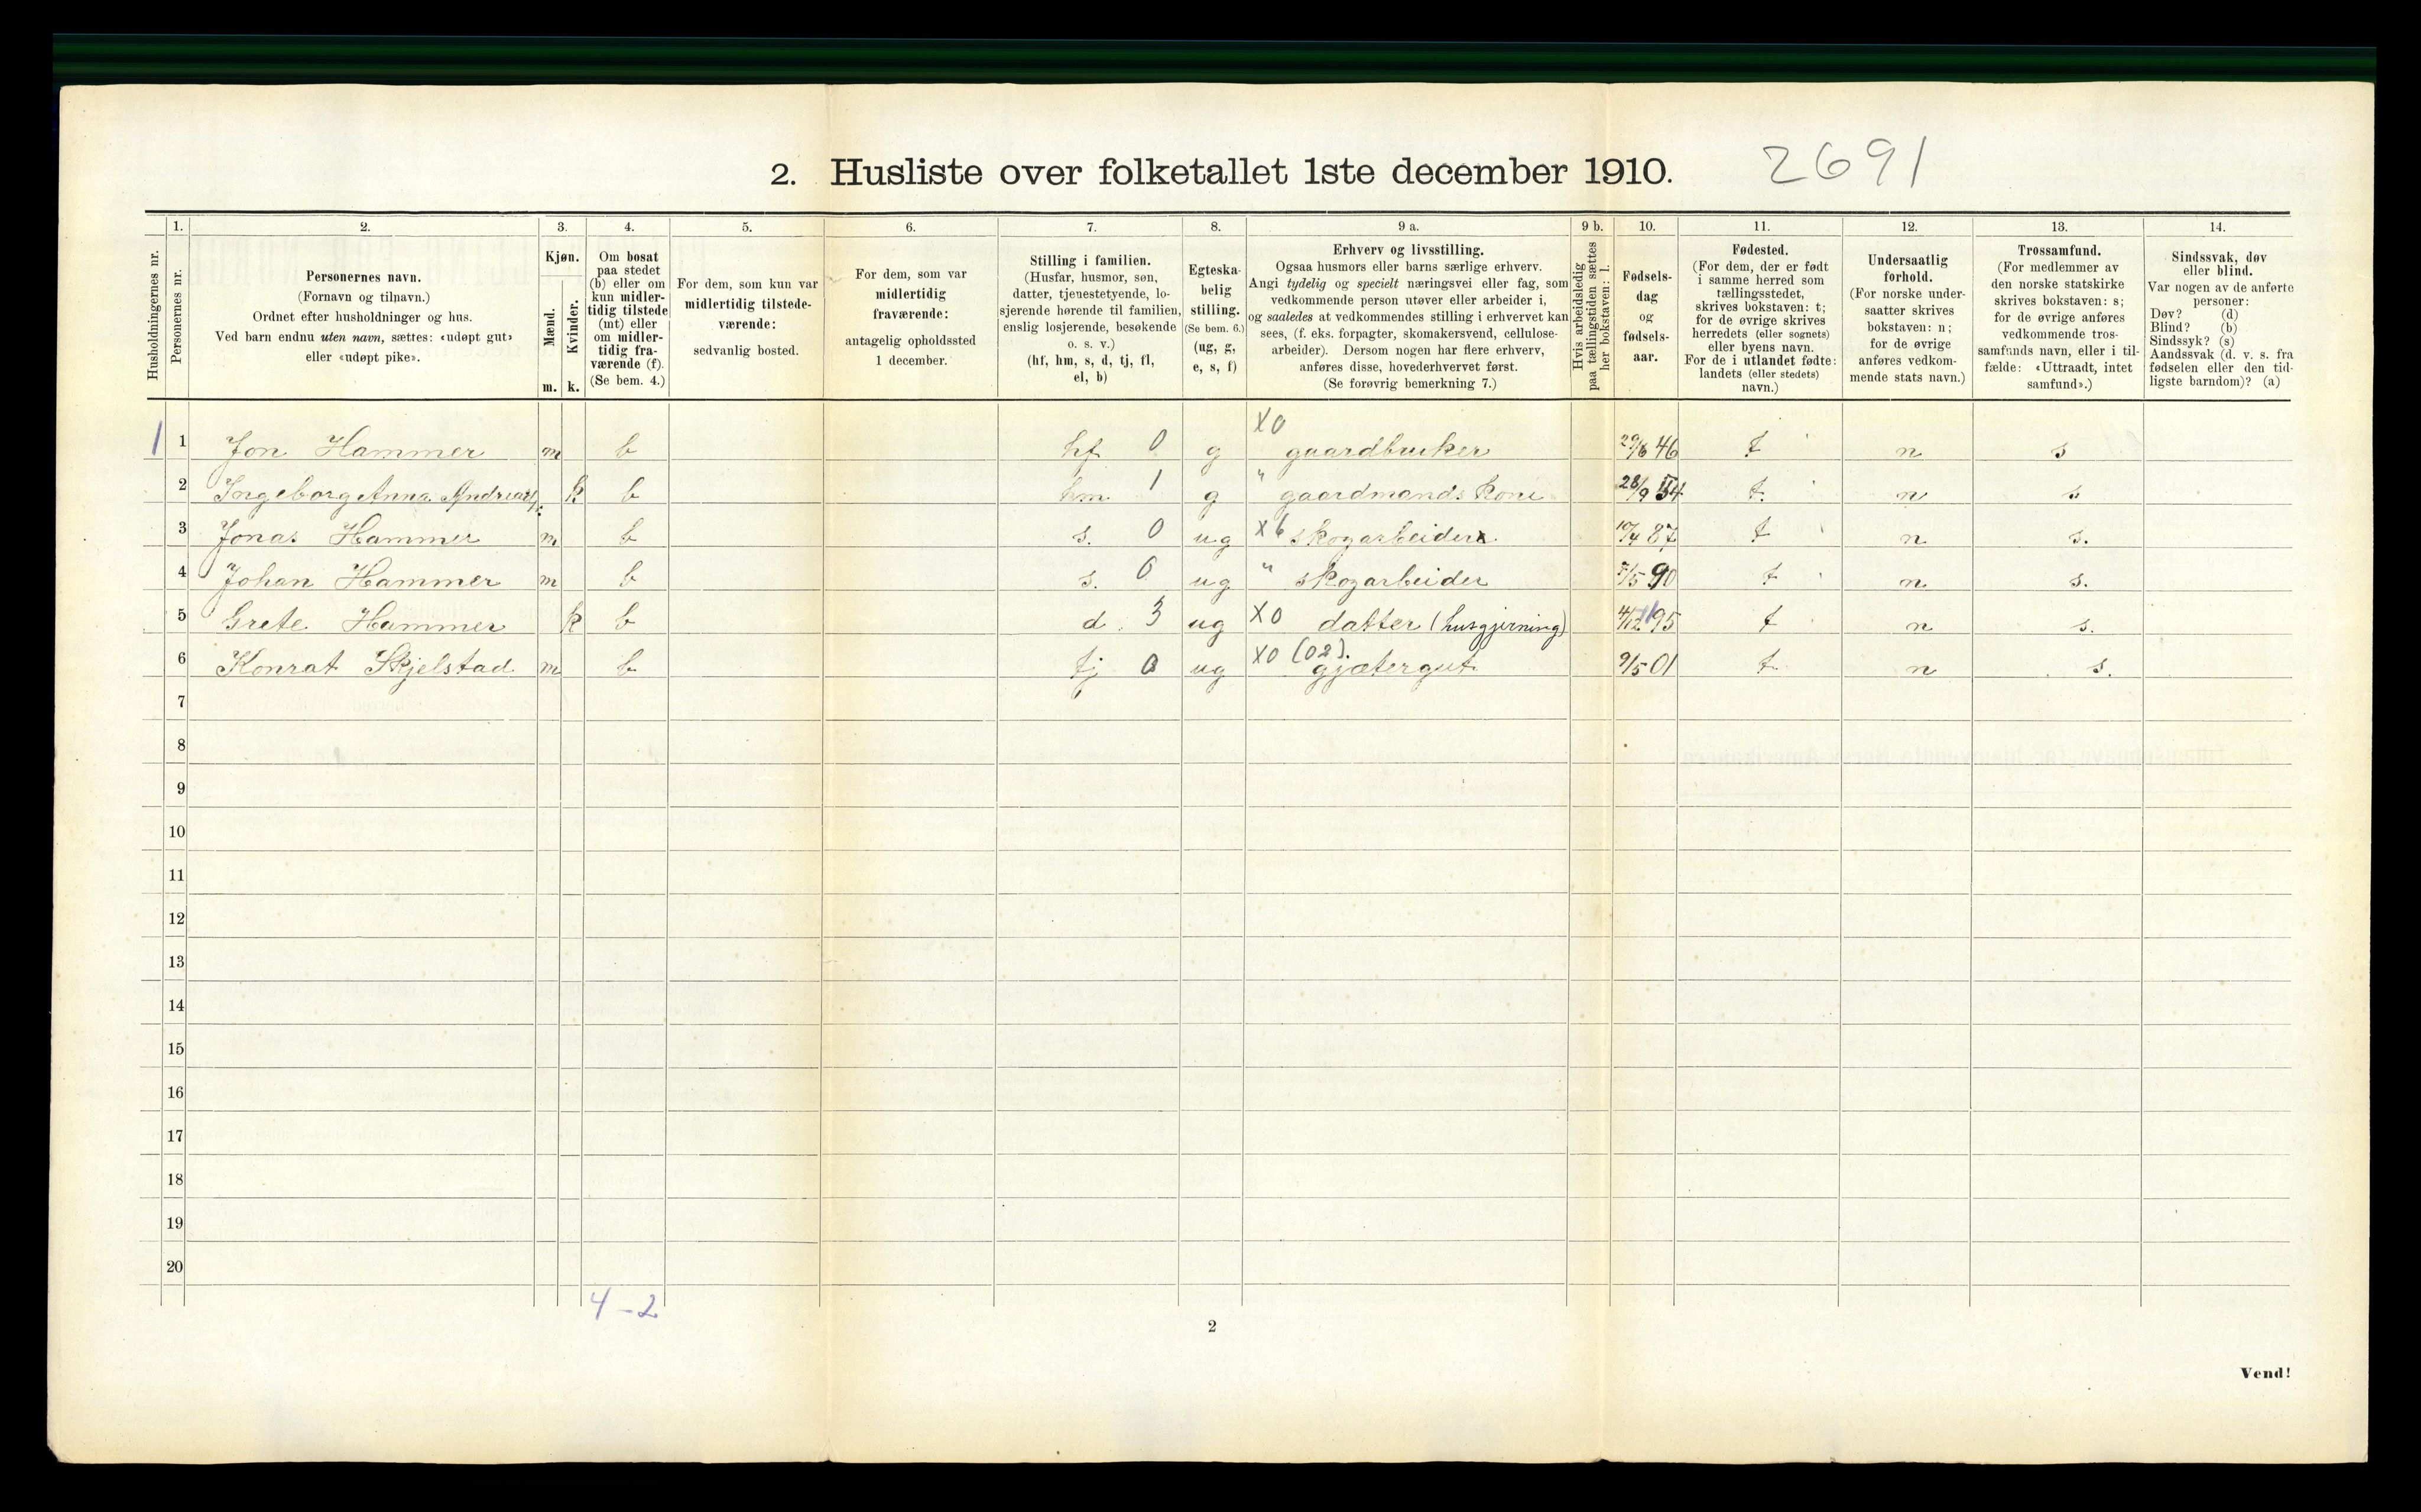 2. Husliste over folketallet 1ste december 1910. 2691
1. 2. 3. 4. 5. 6. 7. 8. 9 a. 9 b. 10. 11. 12. 13. 14.
Husholdningernes nr.
Personernes nr.
Personernes navn.
(Fornavn og tilnavn.)
Ordnet efter husholdninger og hus.
Ved barn endnu uten navn, sættes: «udøpt gut»
eller «udøpt pike».
Kjøn.
Mænd.
Kvinder.
m. k.
Om bosat
paa stedet
(b) eller om
kun midler-
tidig tilstede
(mt) eller
om midler-
tidig fra-
værende (f).
(Se bem. 4.)
For dem, som kun var
midlertidig tilstede-
værende:
sedvanlig bosted.
For dem, som var
midlertidig
fraværende:
antagelig opholdssted
1 december.
Stilling i familien.
(Husfar, husmor, søn,
datter, tjenestetyende, lo-
sjerende hørende til familien,
enslig losjerende, besøkende
o. s. v.)
(hf, hm, s, d, tj, fl,
el, b)
Egteska-
belig
stilling.
(Se bem. 6.)
(ug, g,
e, s, f)
Erhverv og livsstilling.
Ogsaa husmors eller barns særlige erhverv.
Angi tydelig og specielt næringsvei eller fag, som
vedkommende person utøver eller arbeider i,
og saaledes at vedkommendes stilling i erhvervet kan
sees, (f. eks. forpagter, skomakersvend, cellulose-
arbeider). Dersom nogen har flere erhverv,
anføres disse, hovederhvervet først.
(Se forøvrig bemerkning 7.)
Hvis arbeidsledig
paa tællingstiden sættes
her bokstaven: l.
Fødsels-
dag
og
fødsels-
aar.
Fødested.
(For dem, der er født
i samme herred som
tællingsstedet,
skrives bokstaven: t;
for de øvrige skrives
herredets (eller sognets)
eller byens navn.
For de i utlandet fødte:
landets (eller stedets)
navn.)
Undersaatlig
forhold.
(For norske under-
saatter skrives
bokstaven: n;
for de øvrige
anføres vedkom-
mende stats navn.)
Trossamfund.
(For medlemmer av
den norske statskirke
skrives bokstaven: s;
for de øvrige anføres
vedkommende tros-
samfunds navn, eller i til-
fælde: «Uttraadt, intet
samfund».)
Sindssvak, døv
eller blind.
Var nogen av de anførte
personer:
Døv? (d)
Blind? (b)
Sindssyk? (s)
Aandssvak (d. v. s. fra
fødselen eller den tid-
ligste barndom)? (a)
1 1 Jon Hammer m b hf 0 g X0 gaardbruker 29/6 46 t n s
2 Ingeborg Anna k b hm 1 g " gaardmands kone 28/9 54 t. n s
3 Jonas Hammer m b s. 0 ug X6 skogarbeider 10/4 87 t n s.
4 Johan Hammer m b s. 0 ug " skogarbeider 7/5 90 t n s.
5 Grete Hammer k b d. 3 ug X0 datter (husgjerning) 4/12 95 t n s.
6 Konrat Skjelstad m b tj 0 ug X0 (02). gjætergut 9/5 01 t n s.
7
8
9
10
11
12
13
14
15
16
17
18
19
20
4-2
2
Vend!